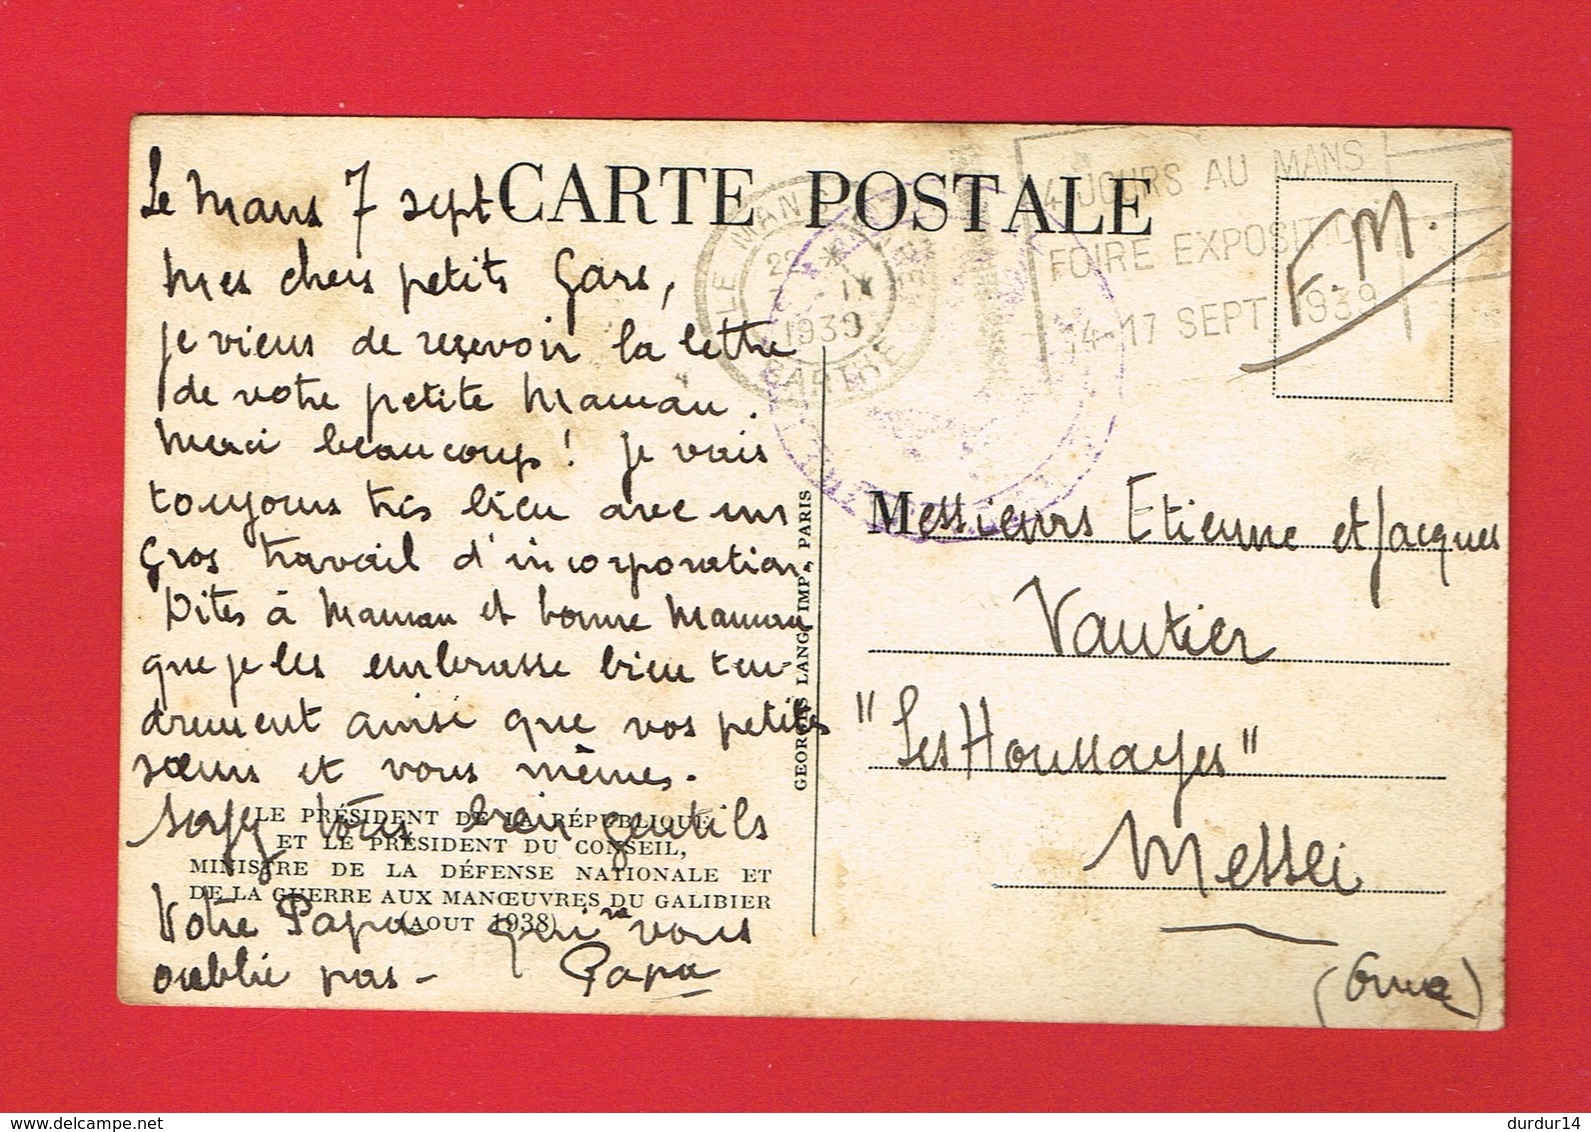 CARTE POSTALE
Le Mans 7 sept.
Mes chers petits Gars,
je viens de reçevoir la lettre
de votre petite Maman.
Merci beaucoup ! Je vais
toujours très bien avec un
Gros travail d'incorporation.
Dites à Maman et bonne Maman
que je les embrasse bien ten-
drement ainsi que vos petites
sœurs et vous mêmes.
Soyez tous bien gentils
Votre Papa qui ne vous
oublie pas - Papa
LE PRÉSIDENT DE LA RÉPUBLIQUE
ET LE PRÉSIDENT DU CONSEIL,
MINISTRE DE LA DÉFENSE NATIONALE ET
DE LA GUERRE AUX MANŒUVRES DU GALIBIER
(AOUT 1938)
GEORGES LANG, IMP., PARIS
LE MANS GARE
22
7 - IX
1939
SARTHE
4 JOURS AU MANS
FOIRE EXPOSITION
14-17 SEPT. 1939
F.M.
Messieurs Etienne et Jacques
Vautier
"Les Houssayes"
Messei
(Orne)
durdur14